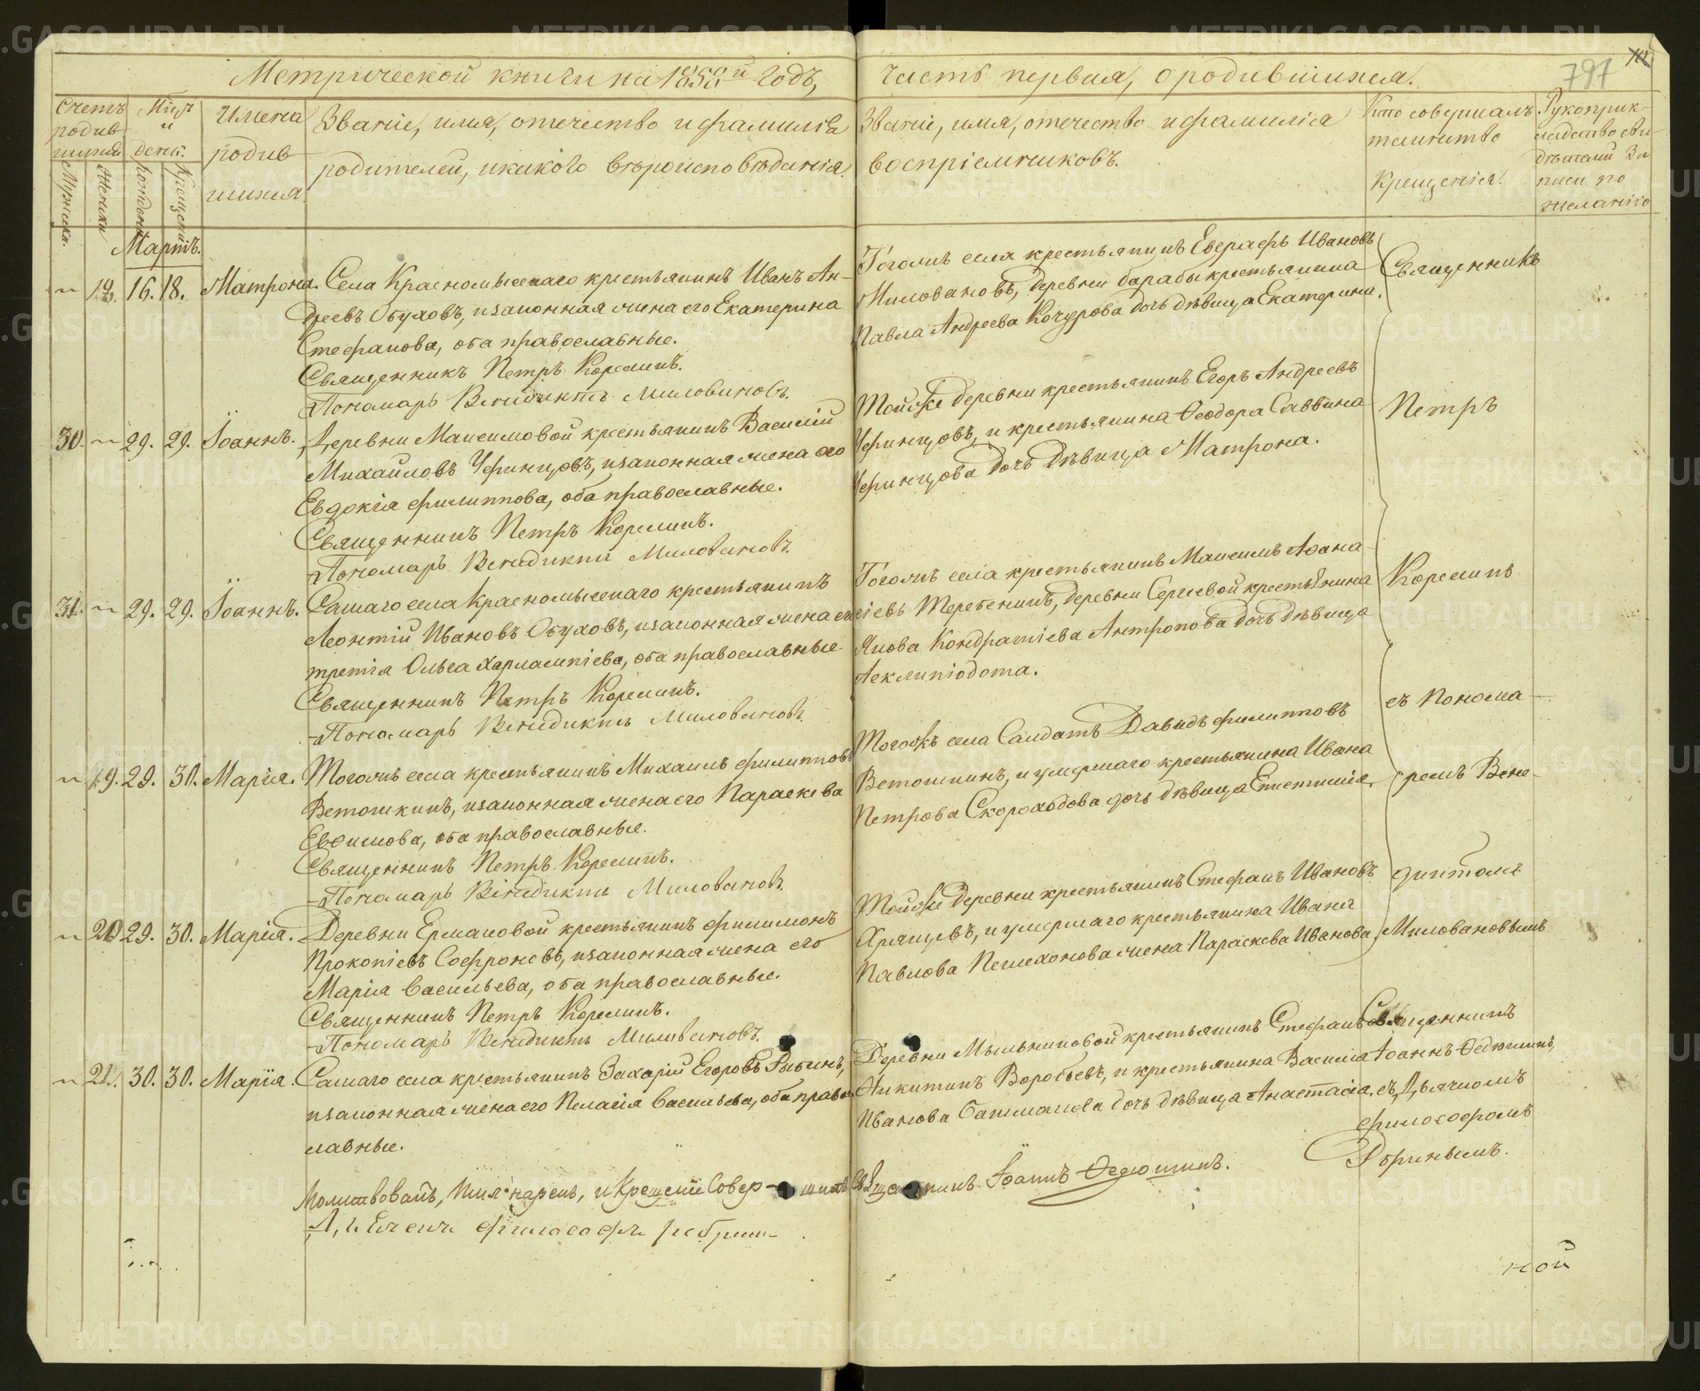 Метрической книги на 1850й годъ,
Счетъ родив-шихся
Мѣс. и день.
Имена родив-шихся
Званіе, имя, отечество и фамилія
родителей, и какого вѣроисповѣданія.
Мужеска.
Женска
рожденія
крещенія
Мартъ.
19. 16. 18. Матрона. Села Красномысскаго крестьянинъ Иванъ Ан-
дреевъ Обуховъ, и законная жена его Екатерина
Стефанова, оба православные.
Священникъ Петръ Корелинъ.
Пономарь Венедиктъ Миловановъ.
30. 29. 29. Іоаннъ. Деревни Максимовой крестьянинъ Василій
Михайловъ Уфинцовъ, и законная жена его
Евдокія Филиппова, оба православные.
Священникъ Петръ Корелинъ.
Пономарь Венедиктъ Миловановъ.
31. 29. 29. Іоаннъ. Самаго села Красномысскаго крестьянинъ
Леонтій Ивановъ Обуховъ, и законная жена его
третія Ольга Харлампіева, оба православные
Священникъ Петръ Корелинъ.
Пономарь Венедиктъ Миловановъ.
19. 29. 30. Марія. Тогожъ села крестьянинъ Михаилъ Филипповъ
Ветошкинъ, и законная жена его Параскева
Евфимова, оба православные.
Священникъ Петръ Корелинъ.
Пономарь Венедиктъ Миловановъ.
20 29. 30. Марія. Деревни Ермаковой крестьянинъ Филимонъ
Прокопіевъ Софроновъ, и законная жена его
Марія Васильева, оба православные.
Священникъ Петръ Корелинъ.
Пономарь Венедиктъ Миловановъ.
21. 30. 30. Марія. Самаго села крестьянинъ Захарій Егоровъ Рыбинъ,
и законная жена его Пелагія Васильева, оба право-
славные.
Молитвовалъ, имя нарекъ, и крещеніе совер-шилъ Священникъ Іоаннъ Федюшинъ.
часть первая, о родившихся.
797
Званіе, имя, отечество и фамилія
воспріемниковъ.
Кто совершалъ
таинство
крещенія.
Рукоприк-
ладство сви-
дѣтелей за
писи по
желанію
Тогожъ села крестьянинъ Евграфъ Ивановъ
Миловановъ, деревни Барабы крестьянина
Павла Андреева Кочурова дочь дѣвица Екатерина.
Тойже деревни крестьянинъ Егоръ Андреевъ
Уфинцовъ, и крестьянина Феодора Саввина
Уфинцова дочь дѣвица Матрона.
Тогожъ села крестьянинъ Максимъ Афана-
сіевъ Теребенинъ, деревни Сергеевой крестьянина
Якова Кондратіева Антропова дочь дѣвица
Асклипіодота.
Тогожъ села Салдатъ Давидъ Филипповъ
Ветошкинъ, и умершаго крестьянина Ивана
Петрова Скороходова дочь дѣвица Епистимія.
Тойже деревни крестьянинъ Стефанъ Ивановъ
Хрянцевъ, и умершаго крестьянина Ивана
Павлова Пешехонова жена Параскева Иванова
Деревни Мыльниковой крестьянинъ Стефанъ
Никитинъ Воробьевъ, и крестьянина Василія
Иванова дочь дѣвица Анастасія,
Священникъ
Петръ
Корелинъ
съ понома-
ремъ Вене-
диктомъ
Миловановымъ
Священникъ
Іоаннъ Федюшинъ,
съ Дьячкомъ
Философомъ
ной